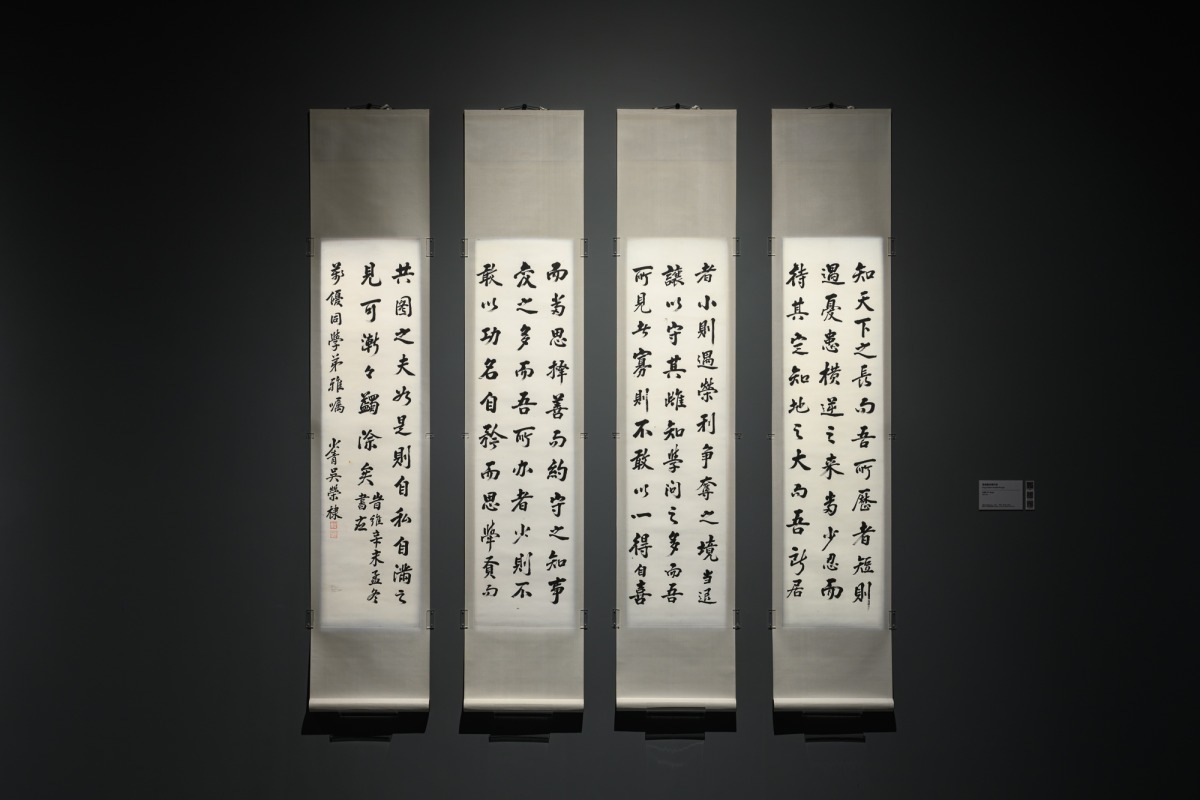 知天下之長而吾所歷者短則
遇憂患橫逆之來當少忍而
待其定知地之大而吾所居
者小則遇榮利爭奪之境當退
讓以守其雌知學問之多而吾
所見者寡則不敢以一得自喜
而當思擇善而約守之知事
變之多而吾所办者少則不
敢以功名自矜而思舉賢而
共圖之夫如是則自私自滿之
見可漸々蠲除矣
旹維辛未孟冬
書
優同學弟雅嘱
少青吳榮棣